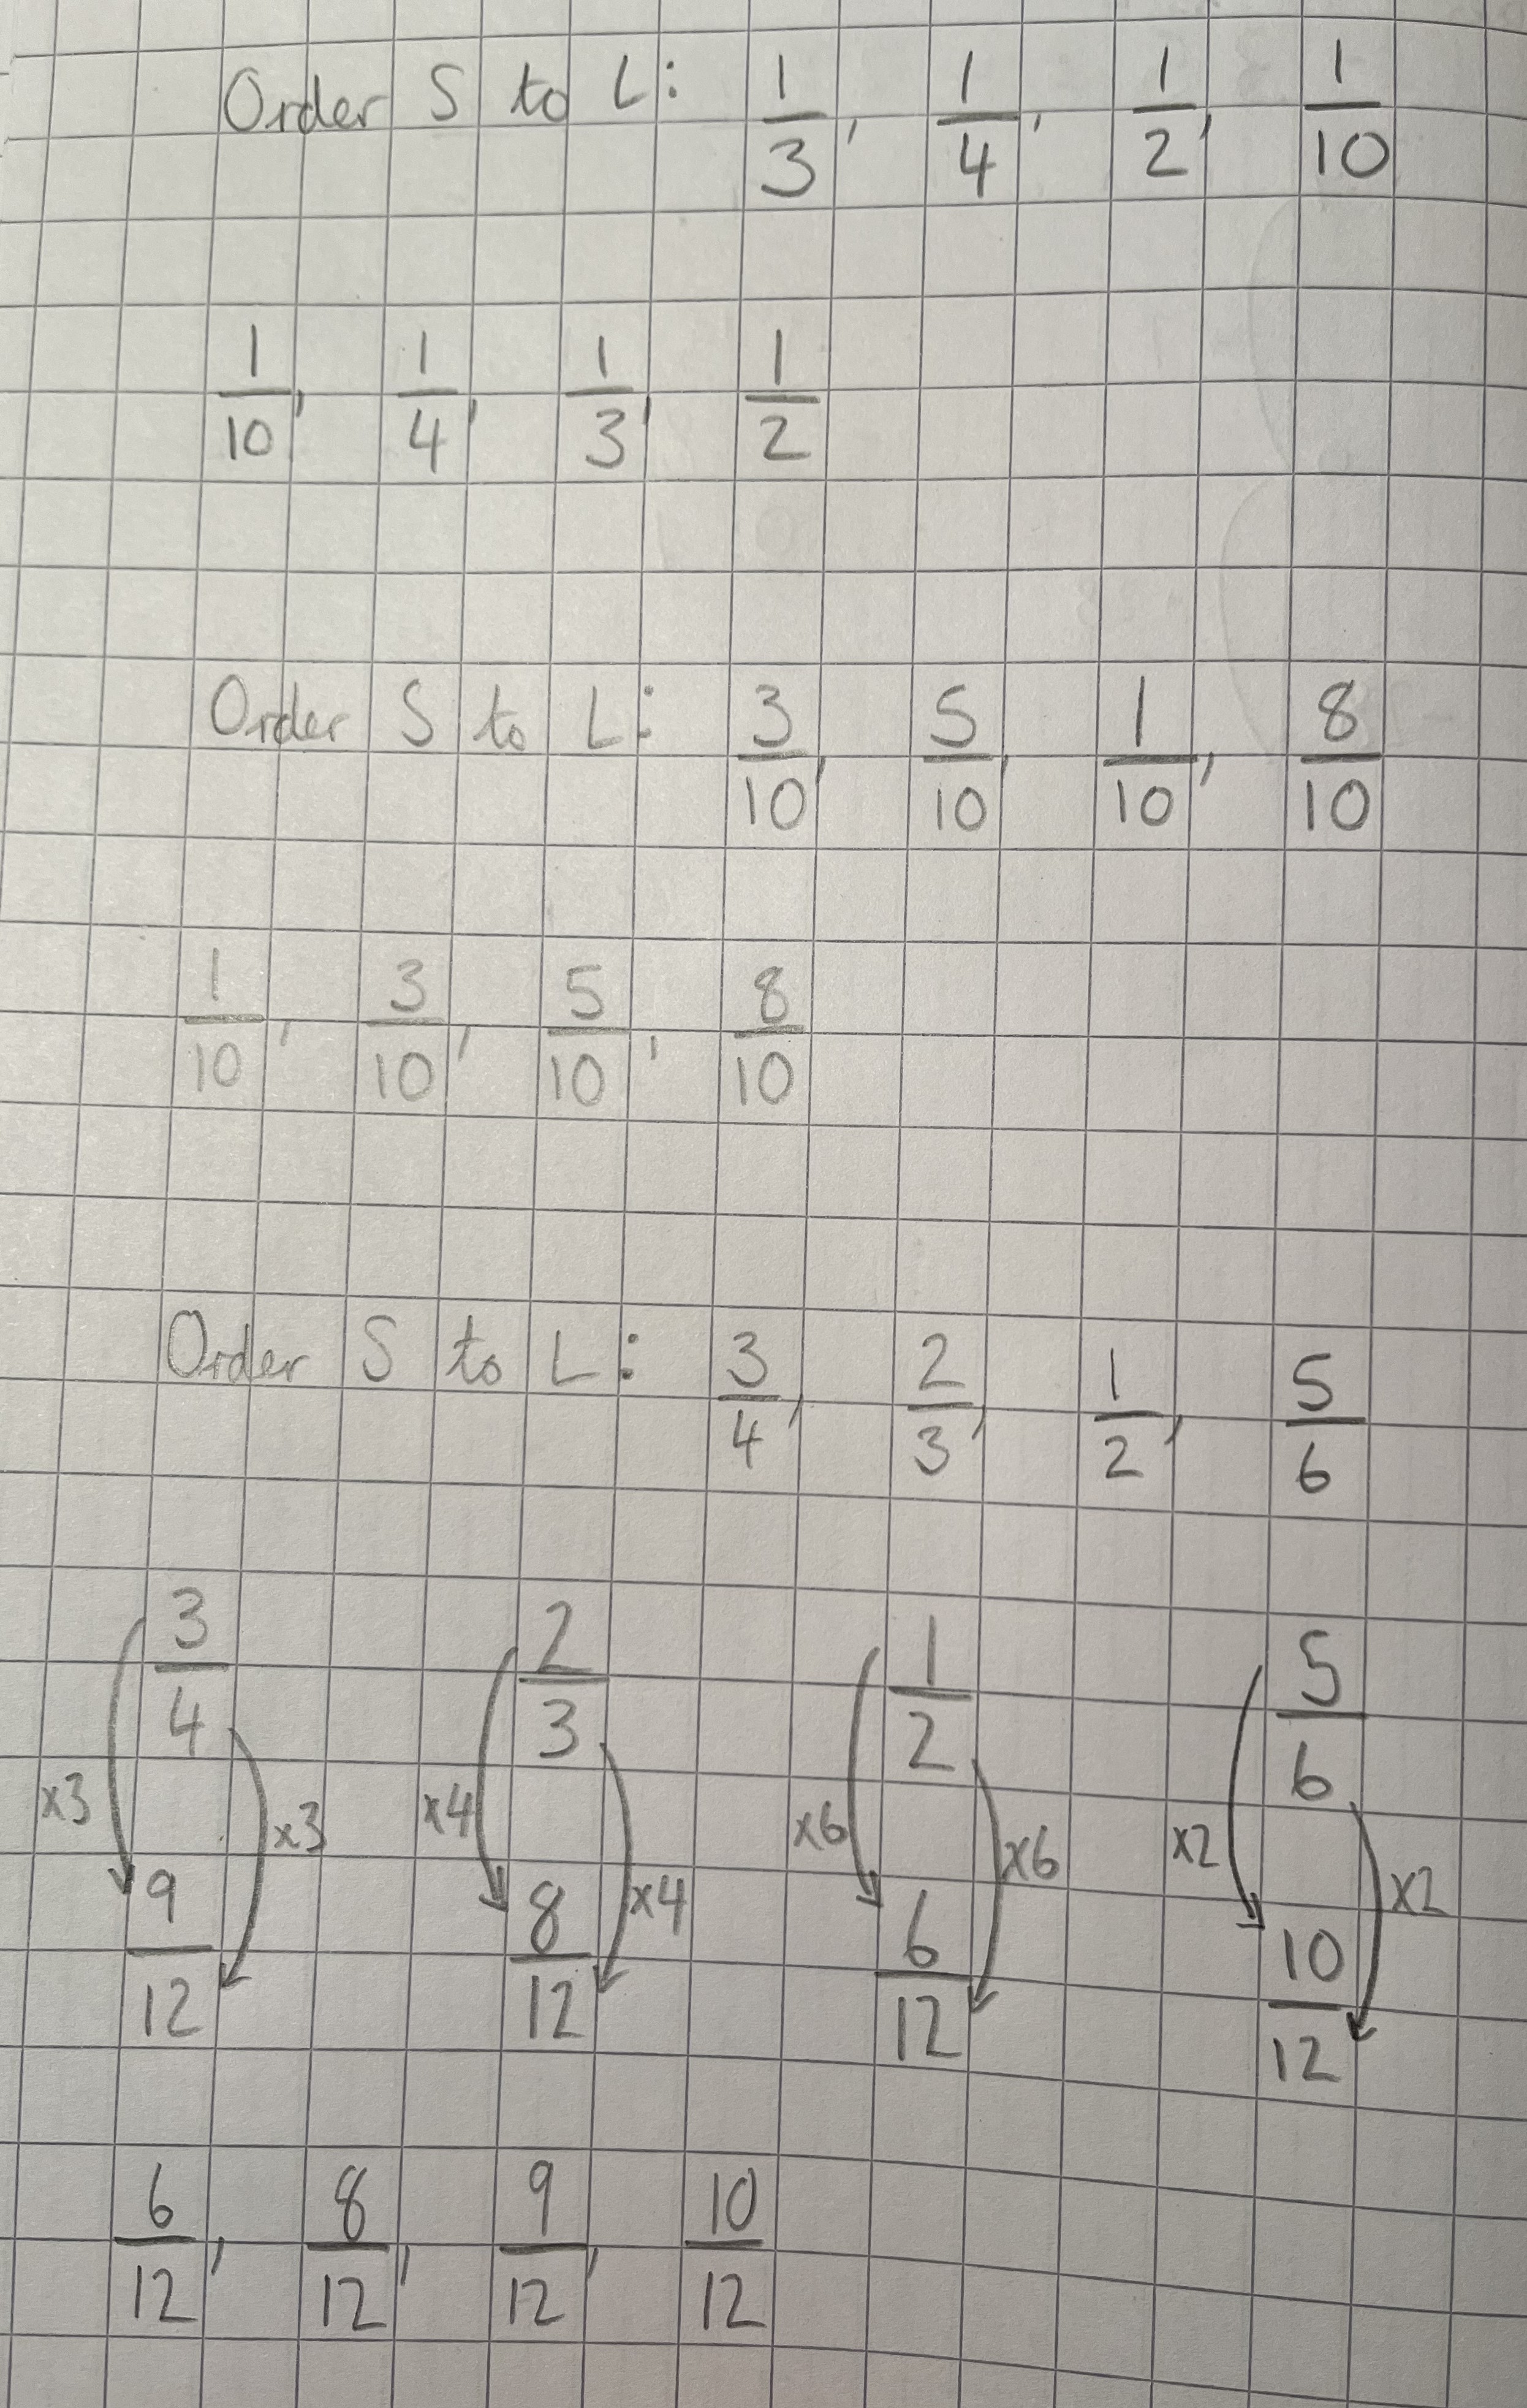 Order S to L: 1/3, 1/4, 1/2, 1/10
1/10, 1/4, 1/3, 1/2
Order S to L: 3/10, 5/10, 1/10, 8/10
1/10, 3/10, 5/10, 8/10
Order S to L: 3/4, 2/3, 1/2, 5/6
3/4 2/3 1/2 5/6
x3 x3 x4 x4 x6 x6 x2 x2
9/12 8/12 6/12 10/12
6/12, 8/12, 9/12, 10/12